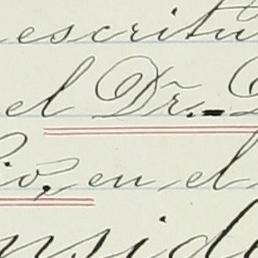 escritu
el Dr.- D
io, en el
nside